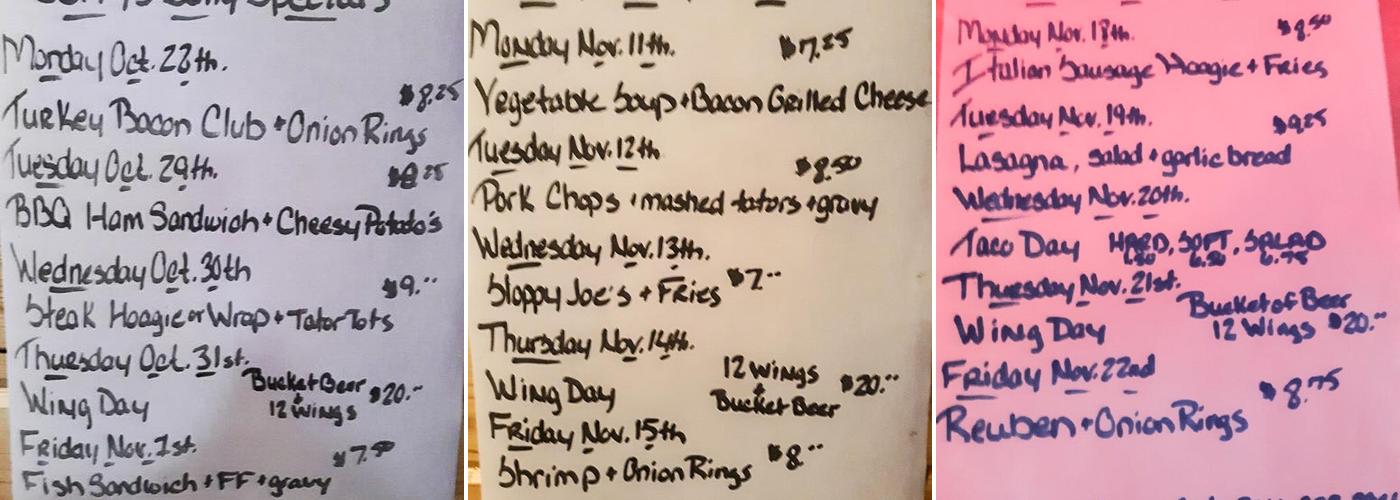 Specials
Monday Oct. 28th.
$8.25
Turkey Bacon Club + Onion Rings
Tuesday Oct. 29th.
$8.25
BBQ Ham Sandwich + Cheesy Potato's
Wednesday Oct. 30th
$9.--
Steak Hoagie or Wrap + Tator Tots
Thuesday Oct. 31st.
Wing Day
Bucket Beer
+
12 wings
$20.--
Friday Nov. 1st.
$7.50
Fish Sandwich + FF + gravy
Monday Nov. 11th.
$7.25
Vegetable Soup + Bacon Grilled Cheese
Tuesday Nov. 12th
$8.50
Pork Chops + mashed tators + gravy
Wednesday Nov. 13th.
Sloppy Joe's + Fries
$7--
Thursday Nov. 14th.
Wing Day
12 Wings
+
Bucket Beer
$20.--
Friday Nov. 15th
Shrimp + Onion Rings
$8.--
Monday Nov. 18th.
$8.50
Italian Sausage Hoagie + Fries
Tuesday Nov. 19th.
$9.25
Lasagna, salad + garlic bread
Wednesday Nov. 20th.
Taco Day HARD, SOFT, SALAD
6.75
Thuesday Nov. 21st.
Wing Day
Bucket of Beer
12 Wings $20.--
Friday Nov. 22nd
$8.75
Reuben + Onion Rings